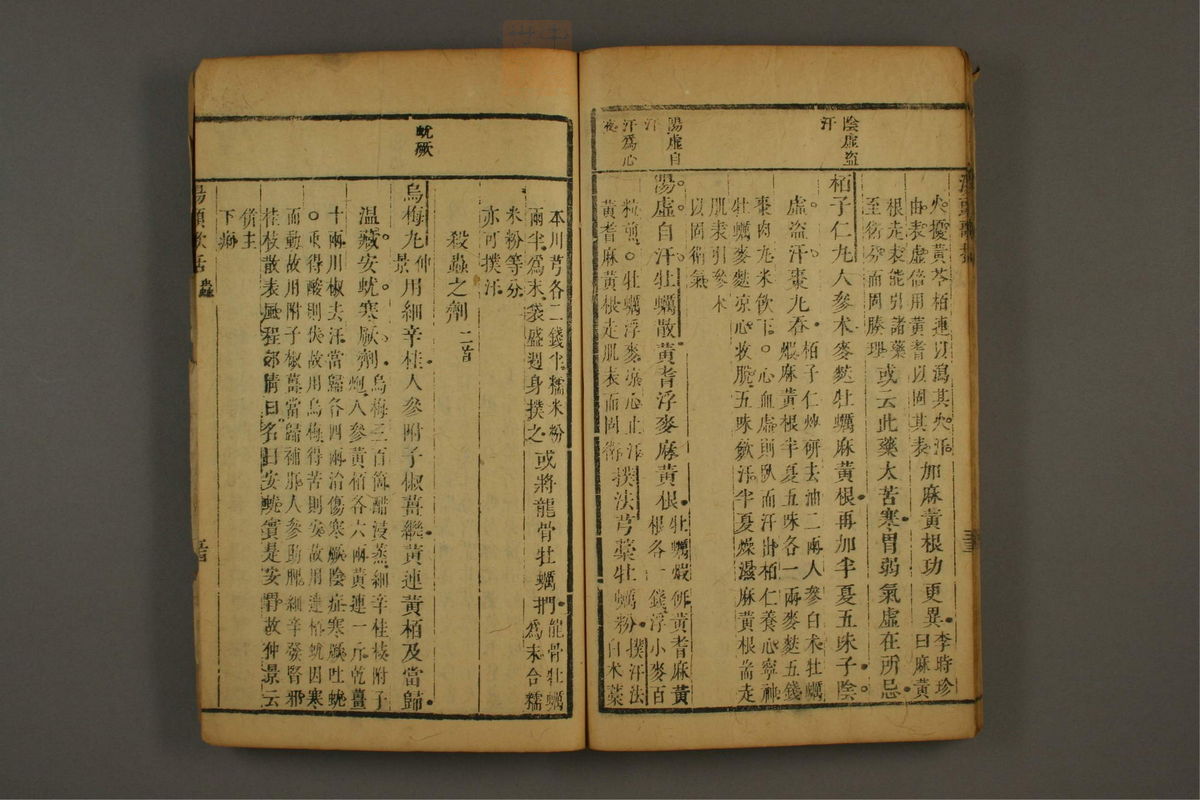 陰虛盜
汗
陽虛自
汗
汗爲心
液
火擾黃芩柏連以瀉其火汗
由表虛倍用黃耆以固其表
加麻黃根功更異
李時珍
曰麻黃
根走表能引諸藥
至衛分而固腠理
或云此藥太苦寒胃弱氣虛在所忌
栢子仁丸人參朮麥麩牡蠣麻黃根再加半夏五味子陰
虛盜汗棗丸吞
栢子仁炒研去油二兩人參白朮牡蠣
煆麻黃根半夏五味各一兩麥麩五錢
棗肉丸米飲下○心血虛則臥而汗出栢仁養心寧神
牡蠣麥麩凉心收脫五味斂汗半夏燥濕麻黃根耑走
肌表引參朮
以固衛氣
陽虛自汗牡蠣散黃耆浮麥麻黃根
牡蠣煆研黃耆麻黃
根各一錢浮小麥百
粒煎○牡蠣浮麥凉心止汗
黃耆麻黃根走肌表而固衛
撲法芎藁牡蠣粉
撲汗法
白朮藁
本川芎各二錢半糯米粉
兩半爲末袋盛週身撲之
或將龍骨牡蠣捫
龍骨牡蠣
爲末合糯
米粉等分
亦可撲汗
殺蟲之劑 二首
蚘厥
烏梅丸
仲
景
用細辛桂人參附子椒薑繼黃連黃栢及當歸
温藏安蚘寒厥劑
烏梅三百箇醋浸蒸細辛桂枝附子
炮人參黃栢各六兩黃連一斤乾薑
十兩川椒去汗當歸各四兩治傷寒厥陰症寒厥吐蚘
○蚘得酸則伏故用烏梅得苦則安故用連栢蚘因寒
而動故用附子椒薑當歸補肝人參助脾細辛發腎邪
桂枝散表風程郊倩曰名曰安蚘實是安胃故仲景云
併主
下痢
湯頭歌括 蟲